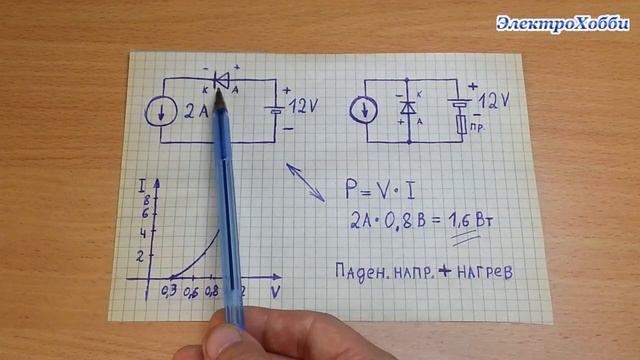 ЭлектроХобби
- +
К А
2А
+
12V
-
- К
+ А
+
12V
-
ПР.
I
8
6
4
2
0,3 0,6 0,8 2 V
P = V · I
2А · 0,8В = 1,6 Вт
ПАДЕН. НАПР. + НАГРЕВ